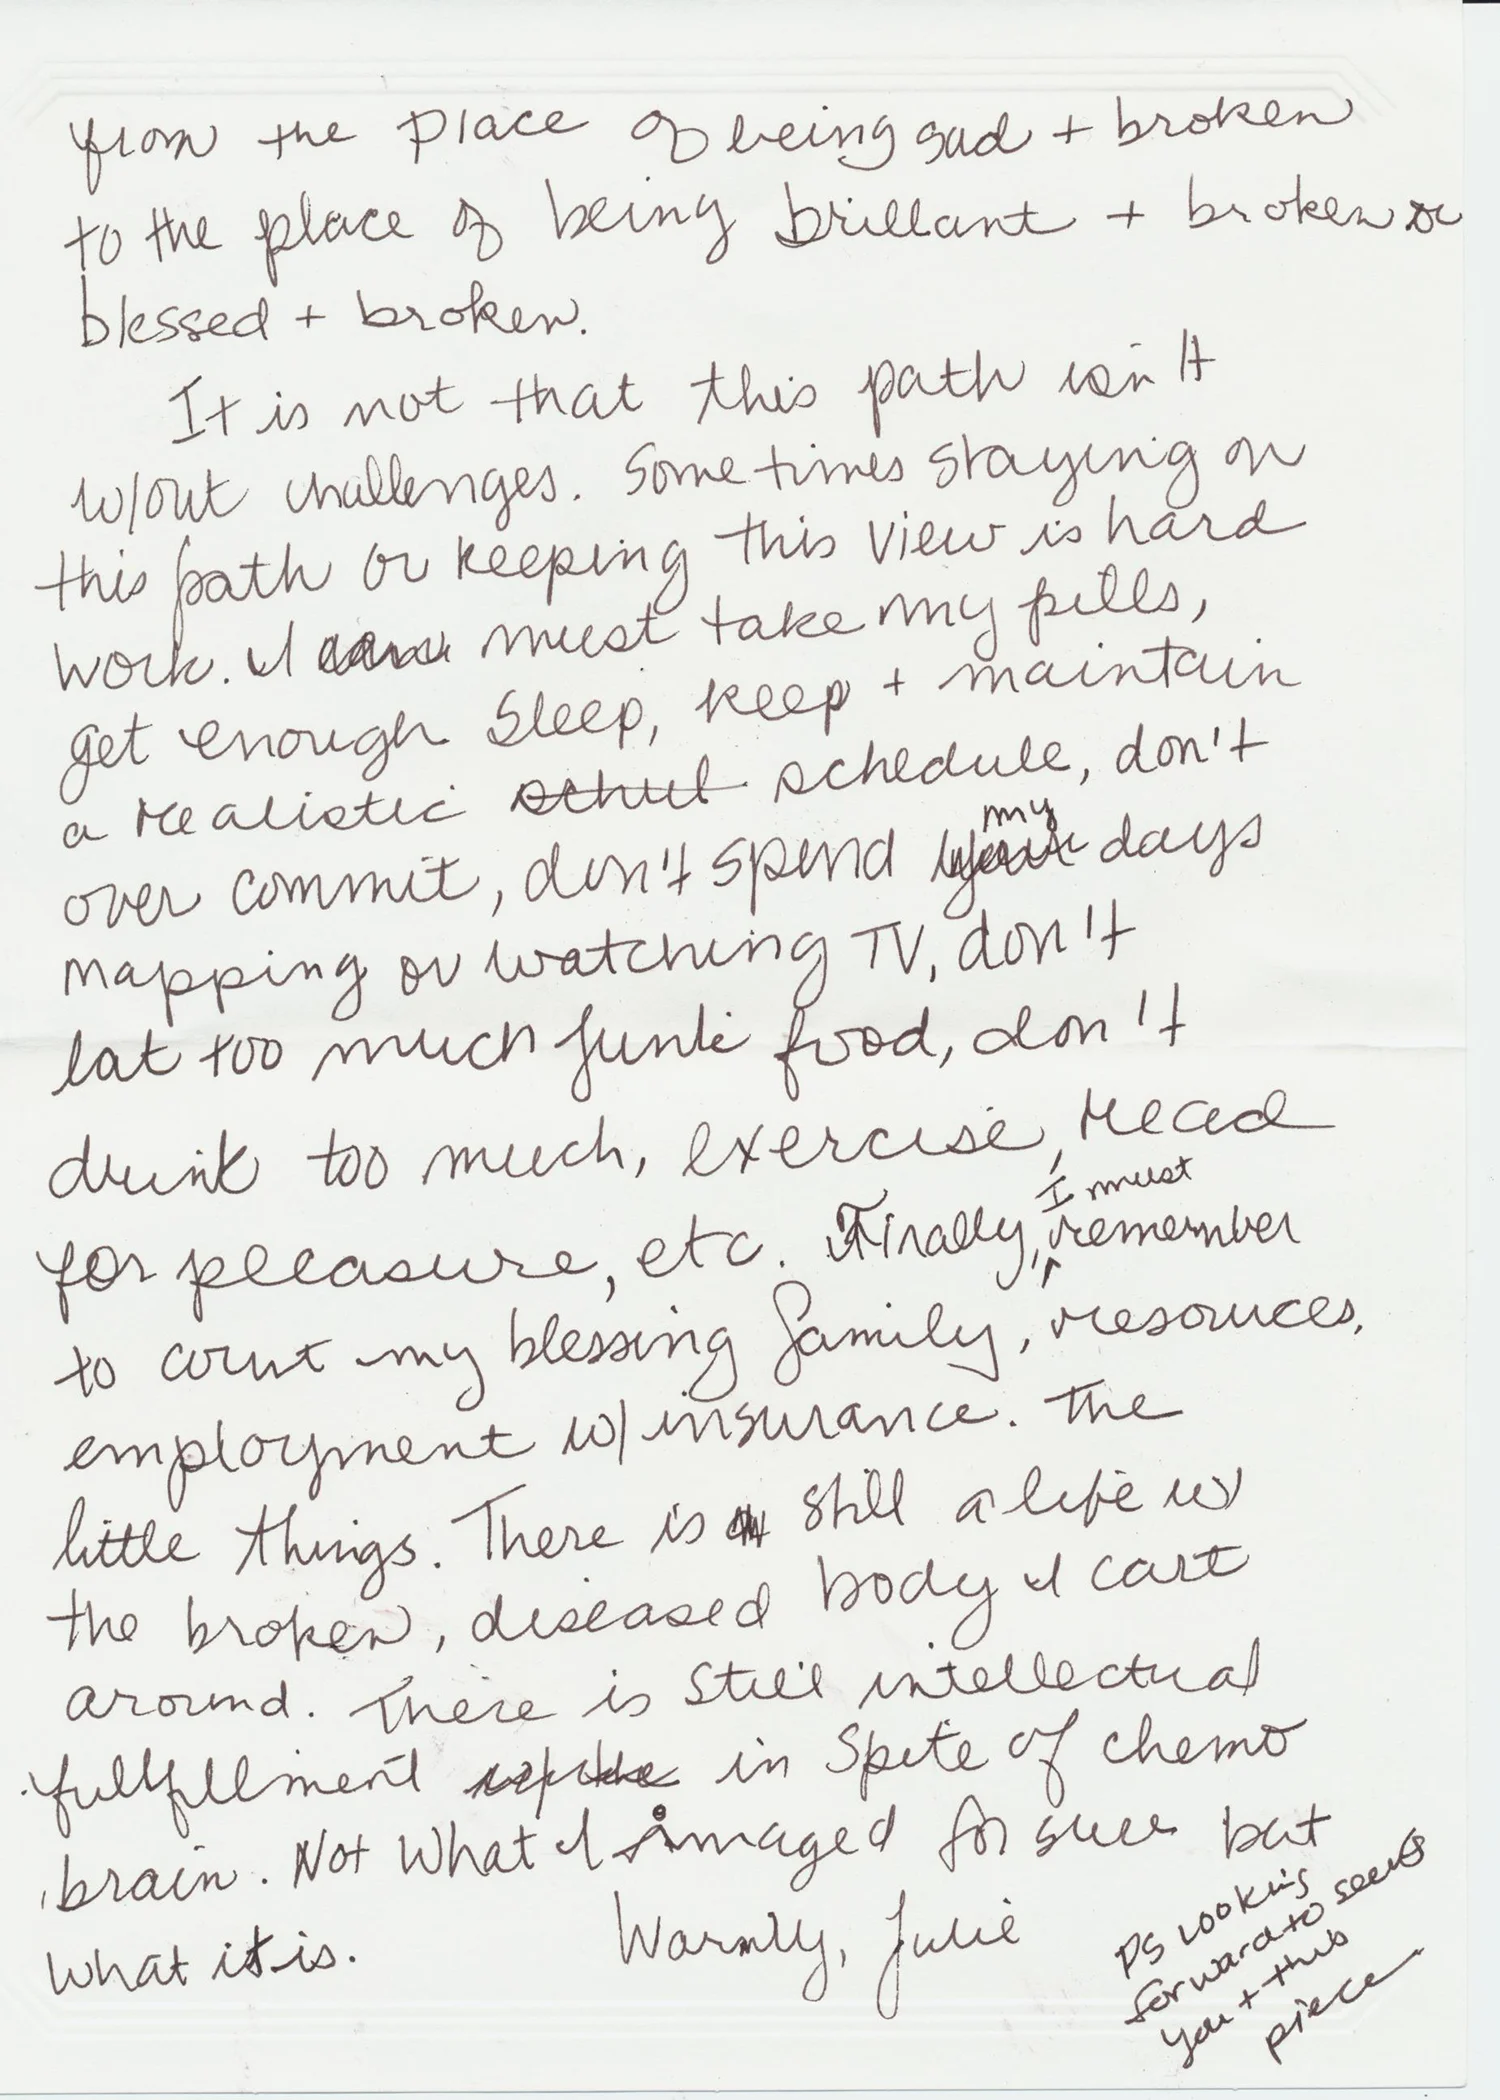 from the place of being sad + broken
to the place of being brillant + broken or
blessed + broken.
It is not that this path isn't
w/out challenges. Sometimes staying on
this path or keeping this view is hard
work. I must take my pills,
get enough sleep, keep + maintain
a realistic schul schedule, don't
my
over commit, don't spend your days
mapping or watching TV, don't
eat too much junk food, don't
drink too much, exercise, read
I must
for pleasure, etc. Finally, remember
to count my blessing family, resources,
employment w/ insurance. The
little things. There is still a life w/
the broken, diseased body I cart
around. There is still intellectual
fullfillment in spite of chemo
brain. Not what I imaged for sure but
what it is.
Warmly, Julie
PS Looking
forward to seeing
you + this
piece